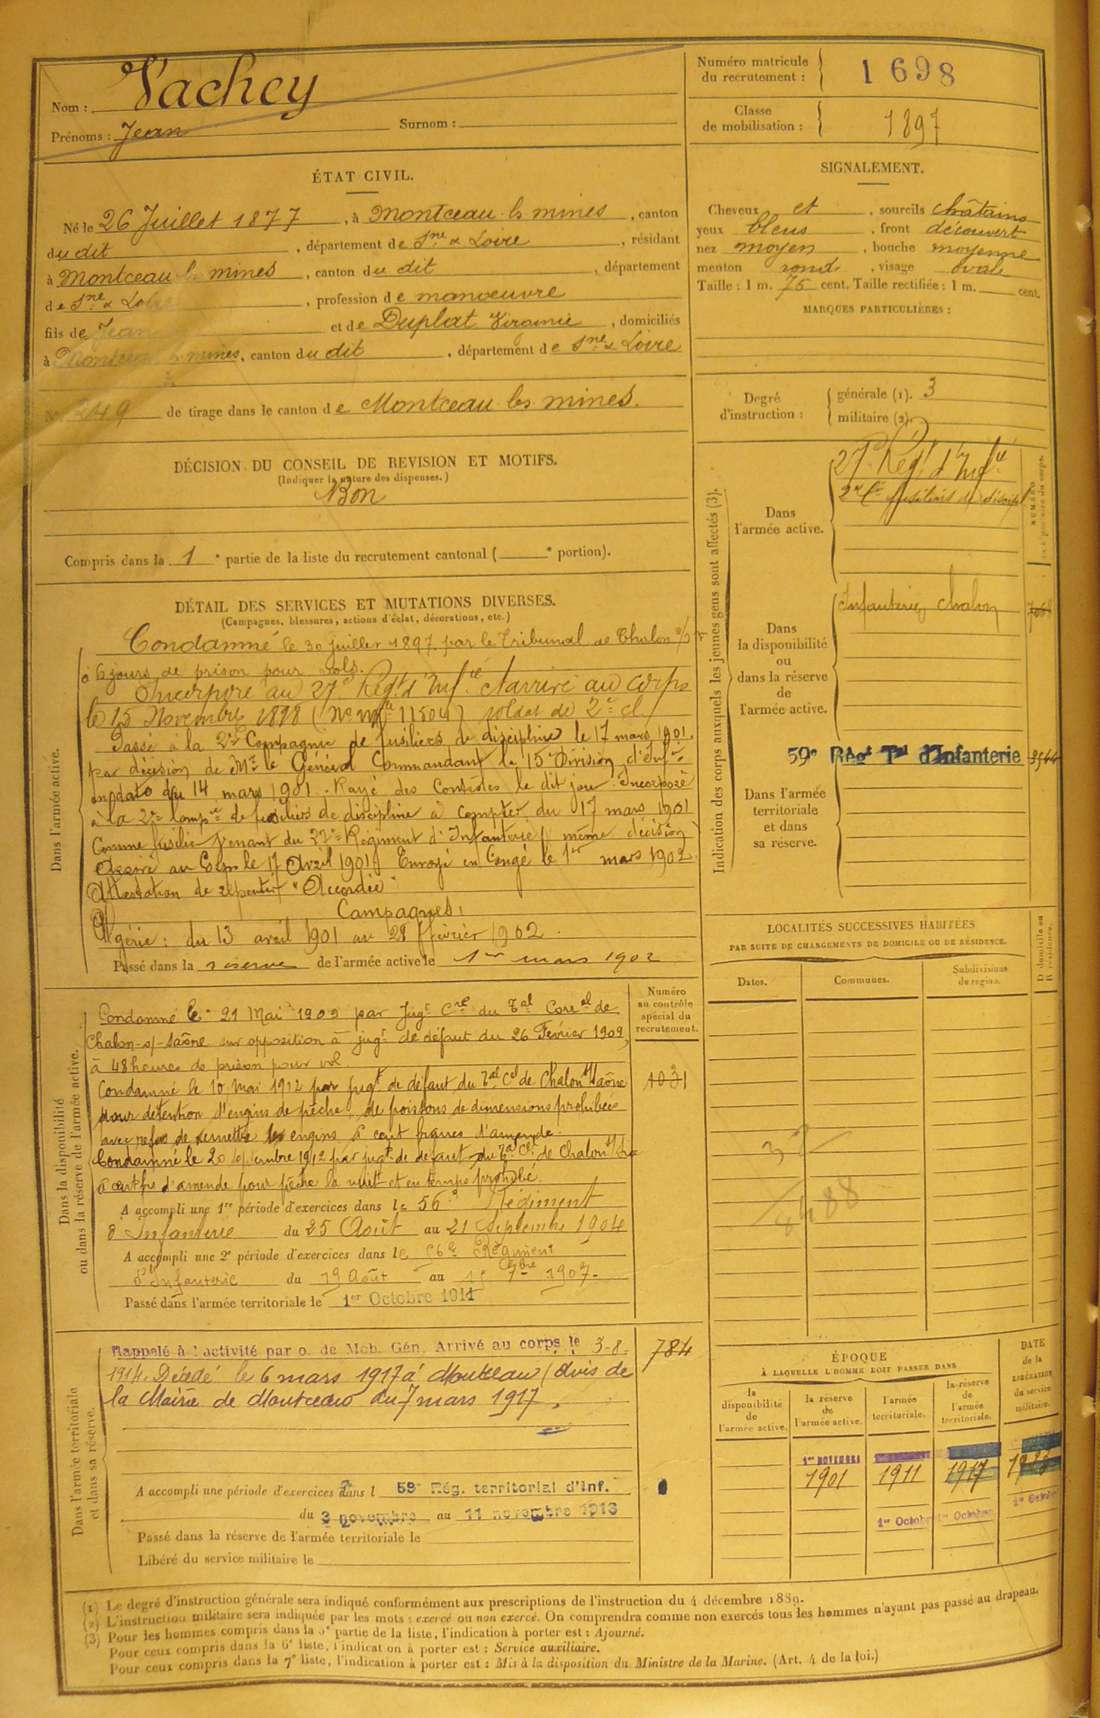 Nom : Vachey
Prénoms : Jean Surnom :
Numéro matricule du recrutement : 1698
Classe de mobilisation : 1897
ÉTAT CIVIL.
Né le 26 Juillet 1877, à Montceau les mines, canton
du dit, département de Sne & Loire, résidant
à Montceau les mines, canton du dit, département
de Sne & Loire, profession de manœuvre
fils de Jean et de Duplat, domiciliés
à Montceau les mines, canton du dit, département de Sne & Loire
No 249 de tirage dans le canton de Montceau les mines.
SIGNALEMENT.
Cheveux et, sourcils châtains
yeux bleus, front découvert
nez moyen, bouche moyenne
menton rond, visage ovale
Taille : 1 m. 75 cent. Taille rectifiée : 1 m. cent.
MARQUES PARTICULIÈRES :
Degré d'instruction : générale (1). 3
militaire (2).
DÉCISION DU CONSEIL DE REVISION ET MOTIFS.
(Indiquer la nature des dispenses.)
Bon
Compris dans la 1e partie de la liste du recrutement cantonal ( e portion).
DÉTAIL DES SERVICES ET MUTATIONS DIVERSES.
(Campagnes, blessures, actions d'éclat, décorations, etc.)
Dans l'armée active.
Condamné le 30 Juillet 1897 par le Tribunal de Chalon s/s
à 6 jours de prison pour vols.
Incorporé au 27e Régt d'Infie et arrivé au corps
le 15 Novembre 1898 (No mle 11504) soldat de 2e cl
Passé à la 2e Compagnie de fusiliers de discipline le 17 mars 1901
par décision de Mr le Général Commandant la 15e Division d'Infie
en date du 14 mars 1901. Rayé des Contrôles le dit jour. Incorporé
à la 2e Compie de fusiliers de discipline à compter du 17 mars 1901
comme fusilier venant du 27e Régiment d'Infanterie même décision
Arrivé au Corps le 17 Avril 1901. Envoyé en Congé le 1er mars 1902
Attestation de repentir "Accordée"
Campagnes :
Algérie : du 13 avril 1901 au 28 février 1902.
Passé dans la réserve de l'armée active le 1er mars 1902
Dans la disponibilité ou dans la réserve de l'armée active.
Numéro au contrôle spécial du recrutement.
Condamné le 21 Mai 1909 par Jugt Cre du Tal Corel de
Chalon-s/-Saône sur opposition à jugt de défaut du 26 Février 1909,
à 48 heures de prison pour vol
Condamné le 10 mai 1912 par jugt de défaut du Tal Cel de Chalon s/Saône
pour détention d'engins de pêche de poissons de dimensions prohibées
avec refus de remettre les engins à cent francs d'amende.
Condamné le 20 septembre 1912 par jugt de défaut du Tal Cel de Chalon s/s
à cent frs d'amende pour pêche la nuit et en temps prohibé.
1031
A accompli une 1re période d'exercices dans le 56e Régiment
d'Infanterie du 25 Août au 21 Septembre 1904
A accompli une 2e période d'exercices dans le 56e Régiment
d'Infanterie du 19 Août au 7bre 1907
Passé dans l'armée territoriale le 1er Octobre 1911
Dans l'armée territoriale et dans sa réserve.
Rappelé à l'activité par o. de Mob. Gén. Arrivé au corps le 3-8-
1914. Décédé le 6 mars 1917 à Montceau (Avis de
la Mairie de Montceau du 7 mars 1917.
784
A accompli une période d'exercices dans l 59e Rég. territorial d'Inf.
du 3 novembre au 11 novembre 1913
Passé dans la réserve de l'armée territoriale le
Libéré du service militaire le
Indication des corps auxquels les jeunes gens sont affectés (3).
Dans l'armée active.
27e Régt d'Infie
2e Cie fusiliers de discipl
Dans la disponibilité ou dans la réserve de l'armée active.
Infanterie, Chalon
59e Rég Tal d'Infanterie
Dans l'armée territoriale et dans sa réserve.
LOCALITÉS SUCCESSIVES HABITÉES
PAR SUITE DE CHANGEMENTS DE DOMICILE OU DE RÉSIDENCE.
Dates. Communes. Subdivisions de région. D domicile ou R résidence.
ÉPOQUE
À LAQUELLE L'HOMME DOIT PASSER DANS
la disponibilité de l'armée active.
la réserve de l'armée active.
l'armée territoriale.
la réserve de l'armée territoriale.
DATE de la LIBÉRATION du service militaire.
1er NOVEMBRE
1901 1911 1917
1er Octobre 1er Octobre 1er Octobre
(1) Le degré d'instruction générale sera indiqué conformément aux prescriptions de l'instruction du 4 décembre 1889.
(2) L'instruction militaire sera indiquée par les mots : exercé ou non exercé. On comprendra comme non exercés tous les hommes n'ayant pas passé au drapeau.
(3) Pour les hommes compris dans la 5e partie de la liste, l'indication à porter est : Ajourné.
Pour ceux compris dans la 6e liste, l'indication à porter est : Service auxiliaire.
Pour ceux compris dans la 7e liste, l'indication à porter est : Mis à la disposition du Ministre de la Marine. (Art. 4 de la loi.)